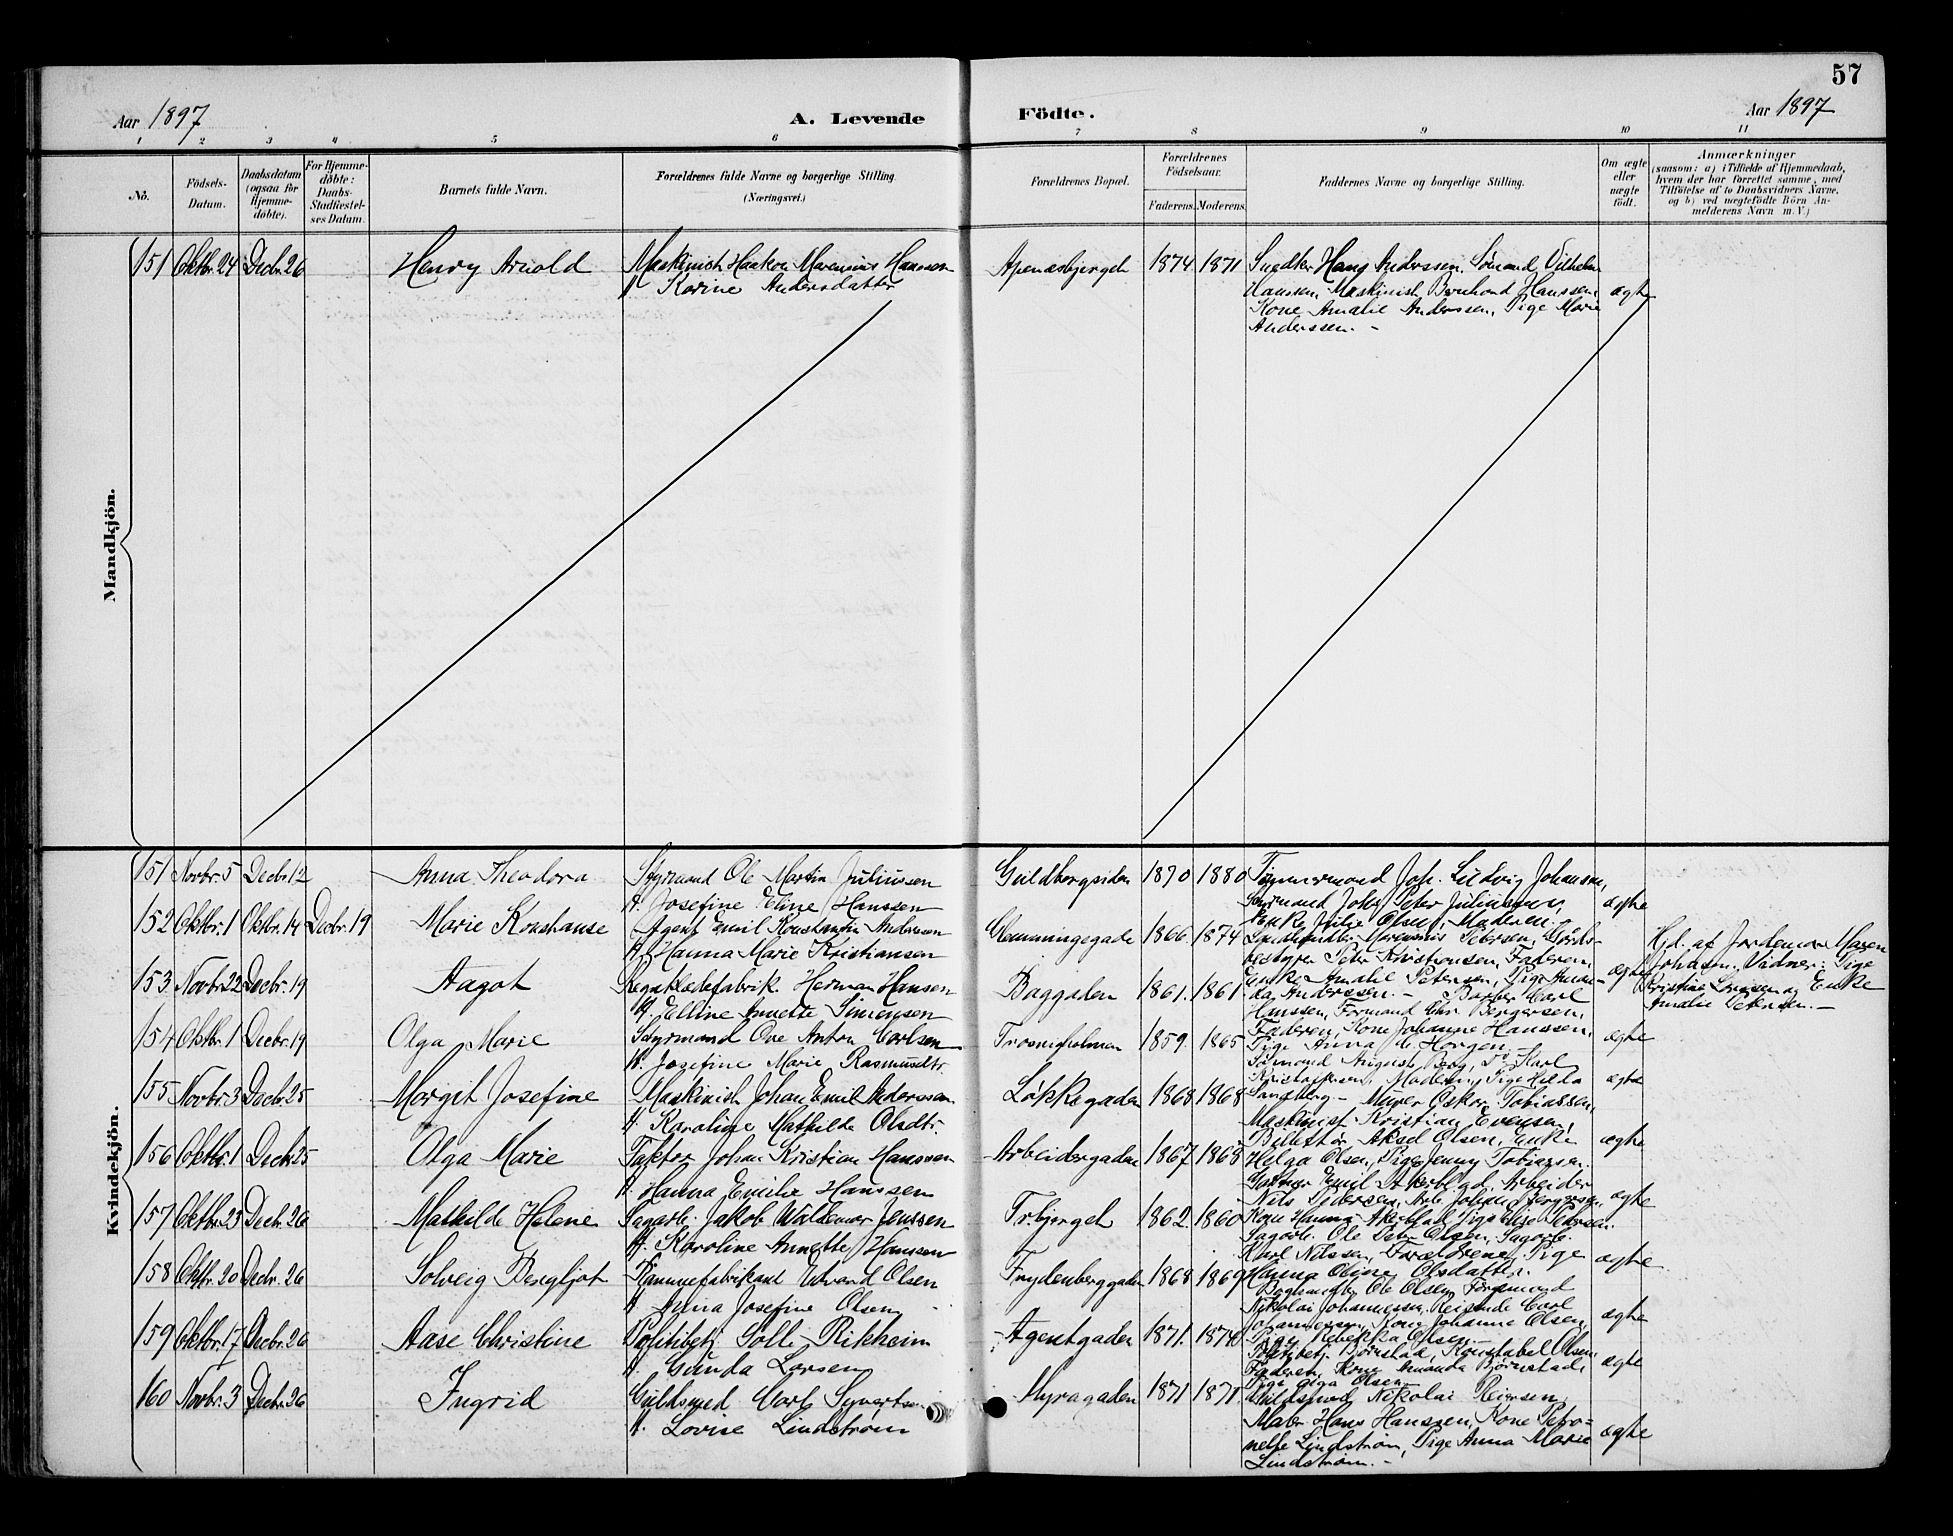 57
Aar 1897
A. Levende
Födte.
Aar 1897
1 2 3 4 5 6 7 8 9 10 11
No.
Födsels-Datum.
Daabsdatum (ogsaa for Hjemme-döbte).
For Hjemme-döbte: Daabs-Stadfæstel-ses Datum.
Barnets fulde Navn.
Forældrenes fulde Navne og borgerlige Stilling. (Næringsvei.)
Forældrenes Bopæl.
Forældrenes Födselsaar.
Faderens. Moderens.
Faddernes Navne og borgerlige Stilling.
Om ægte eller uægte födt.
Anmærkninger
(saasom: a) i Tilfælde af Hjemmedaab, hvem der har forrettet samme, med Tilföielse af to Daabsvidners Navne, og b) ved uægtefödte Börn An-melderens Navn m. V.)
Mandkjön.
151 Oktbr. 24 Decbr. 26 Henry Arnold Maskinist Haakon Marensius Hanssen
H. Karine Andersdatter
Apenæsbjerget 1874 1871
Snedker Hans Anderssen, Sömand Vilhelm
Hanssen, Maskinist Bernhard Hanssen,
Kone Amalie Anderssen, Pige Marie
Anderssen. -
ægte
Kvindekjön.
151 Novbr. 5 Decbr. 12 Anna Theodora Styrmand Ole Martin Juliussen
H. Josefine Eline Hanssen
Guldbergsiden 1870 1880
Joh. Ludvig Johansen,
Styrmand Johs Peter Juliussen,
Enke Julie Olsen, Moderen. -
ægte
152 Oktbr. 1 Oktbr. 14 Decbr. 19 Marie Konstanse Agent Emil Konstantin Andresen
H. Hanna Marie Kristiansen
Glemmingegade 1866 1874
Marensius Petersen, Gårds-
bestyrer Peter Kristiansen, Faderen,
Enke Amalie Petersen, Pige Aman-
da Andresen. -
ægte
Hjd. af Jordemor Maren
Johasen. Vidner: Pige
Kristine Larsen og Enke
Amalie Petersen. -
153 Novbr. 22 Decbr. 19 Aagot Segaltlædefabrik. Herman Hansen
H. Elline Annette Simensen
Baggaden 1861. 1861
Barber Carl
Hanssen, Formand Chr Bergersen,
Faderen, Kone Johanne Hanssen,
Pige Anna de Horgen. -
ægte
154 Oktbr. 1 Decbr. 19 Olga Marie Styrmand Ove Anton Carlsen
H. Josefine Marie Rasmusdtr.
Trosvigholmen 1859. 1865
Sömand August Berg, Do Karl
Kristoffersen, Moderen, Pige Hilda
Sandberg -
ægte
155 Novbr. 3 Decbr. 25 Margit Josefine Maskinist Johan Emil Anderssen
H. Karoline Mathilde Olsdtr.
Løkkegaden 1868 1868
Murer Oskar Tobiassen,
Maskinist Kristian Evensen,
Billettør Aksel Olsen, Enke
Helga Olsen, Pige Jenny Tobiassen.
ægte
156 Oktbr. 1 Decbr. 25 Olga Marie Faktor Johan Kristian Hanssen
H. Hanna Emilie Hanssen
Arbeidergaden 1867 1868
Emil Akerblad, Arbeider
Nils Pedersen, Arb. Johan Jörgensen,
Kone Hanna Akerblad, Pige Elise Pedersen.
ægte
157 Oktbr. 25 Decbr. 26 Mathilde Helene Sagarb. Jakob Waldemar Jenssen
H. Karoline Annette Hanssen
Tr.bjerget 1862 1860
Sagarb. Ole Peter Olsen, Sagarb.
Karl Nilssen, Forældrene, Pige
Hanna Oline Olsdatter.
ægte
158 Oktbr. 20 Decbr. 26 Solveig Bergljot Kammefabrikant Edvard Olsen
H. Anna Josefine Olsen
Frydenberggaden 1868 1869
Ole Olsen, Formand
Nikolai Johannessen, Reisende Carl
Johannessen, Kone Johanne Olsen,
Pige Rebekka Olsen. -
ægte
159 Oktbr. 17 Decbr. 26 Aase Christine Politibetj. Solli-Rikheim
H. Gunda Larsen
Agentgaden 1871. 1874
Politibetj. Bjørnstad, Konstabel Olsen,
Faderen, Kone Amanda Bjørnstad,
Pige Olga Olsen.
ægte
160 Novbr. 3 Decbr. 26 Ingrid Guldsmed Carl Syvertsen
H. Lovise Lindstrøm
Myragaden 1871 1871.
Guldsmed Nikolai Reiersen,
Maler Hans Hanssen, Kone Petro-
nelle Lindstrøm, Pige Anna Marie
Lindstrøm. -
ægte